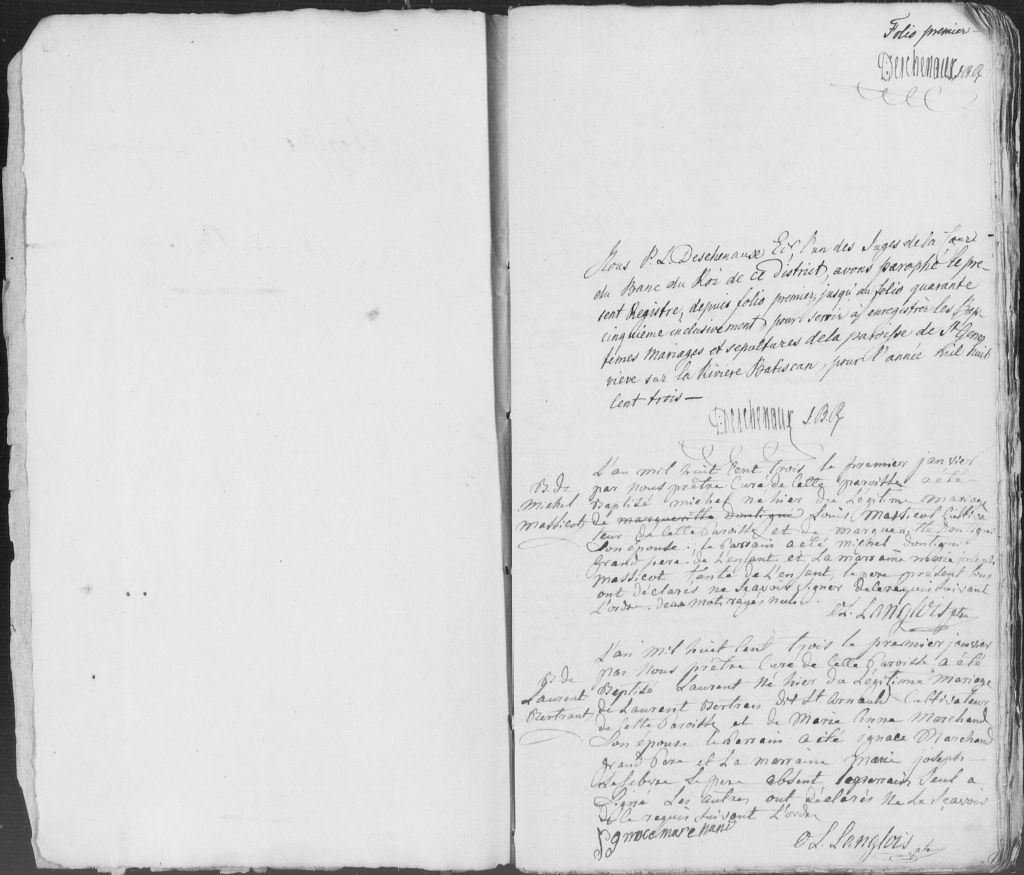 Folio premier
Deschenaux J.B.R.
Nous P. L. Deschenaux Ecr. l'un des Juges de la Cour
du Banc du Roi de ce district, avons parophé le pre-
sent Registre, depuis folio premier, jusqu'au folio quarante
cinquième inclusivement, pour servir à enregistrer les Bap-
têmes mariages et sepultures de la paroisse de Ste Gene-
viève sur la Rivière Batiscan, pour l'année mil huit
cent trois —
Deschenaux J.B.R.
L'an mil huit Cent trois le premier janvier
par nous prêtre Curé de Cette paroisse a été
Baptisé michel né hier du Légitime mariage
de margueritte dontigni Louis Massicot Cultiva
teur de Cette Paroisse et de margueritte Dontigni
Son épouse ; le Parrain a été michel dontigni
Grand pere de L'enfant et La marraine marie joseph
massicot tante de L'enfant, le pere présent tous
ont déclarés ne Scavoir Signer de le requis suivant
L'ordre. deux mots rayés nuls.
B. de
Michel
Massicot
C. L. Langlois ptre
L'an mil huit Cent trois le premier janvier
par nous prêtre Curé de Cette Paroisse a été
Baptisé Laurent né hier du Légitime mariage
de Laurent Bertran dit St Arnauld Cultivateur
de Cette Paroisse et de Marie Anne Marchand
Son épouse le Parrain a été ignace Marchand
grand Pere et La marraine marie joseph
Lefebvre Le pere absent le parrain Seul a
Signé Les autres ont déclarés ne Le Scavoir
de le requis suivant L'ordre
B. de
Laurent
Bertrant
Ignace marchand
C. L. Langlois ptre